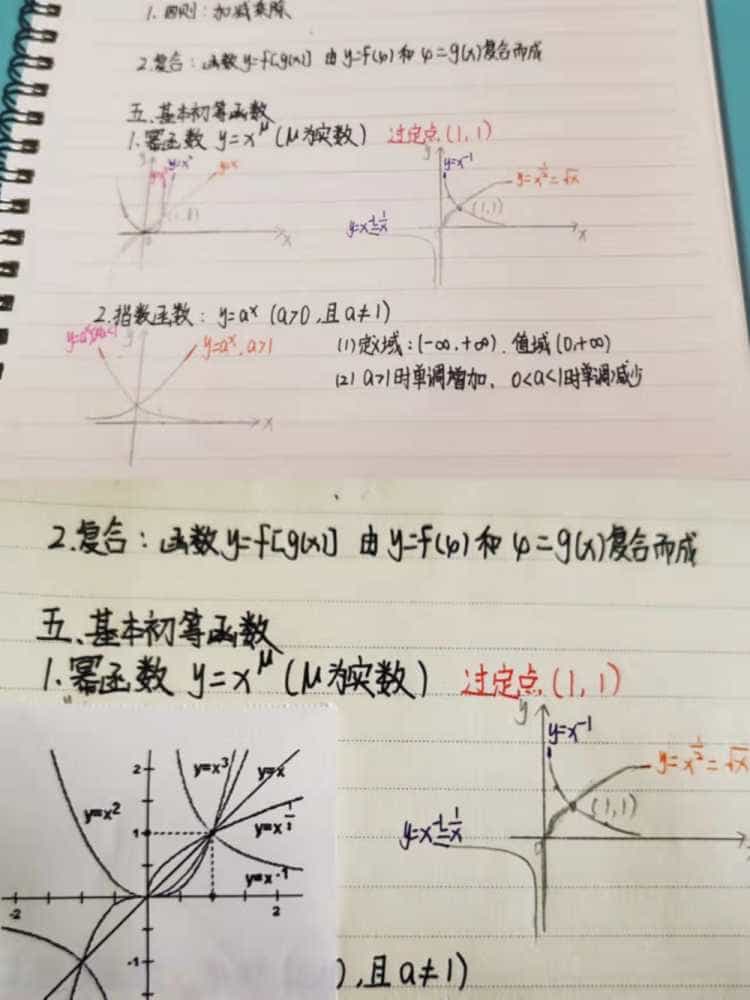 1. 四则：加减乘除
2.复合：函数 y=f[g(x)] 由 y=f(φ) 和 φ=g(x)复合而成
五、基本初等函数
1.幂函数 y=x^μ (μ为实数) 过定点(1,1)
y y=x² y=x
(1,1)
0 x
y y=x⁻¹
y=x^½=√x
(1,1)
x
2.指数函数：y=aˣ (a>0,且a≠1)
y y=aˣ,a>1
x
(1)定义域：(-∞,+∞). 值域(0,+∞)
(2) a>1时单调增加, 0<a<1时单调减少
2.复合：函数 y=f[g(x)] 由 y=f(φ) 和 φ=g(x)复合而成
五、基本初等函数
1.幂函数 y=x^μ (μ为实数) 过定点(1,1)
2 y=x³ y=x
y=x²
1 y=x^½
y=x⁻¹
-2 2
-1
y y=x⁻¹
y=x^½=√x
(1,1)
0
),且a≠1)